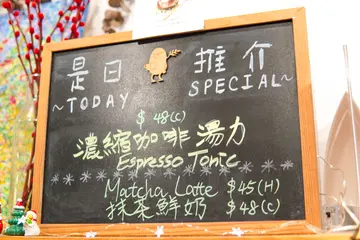 是日 推介
~TODAY SPECIAL~
$48(C)
濃縮咖啡湯力
Espresso Tonic
Matcha Latte $45(H)
抹茶鮮奶 $48(C)